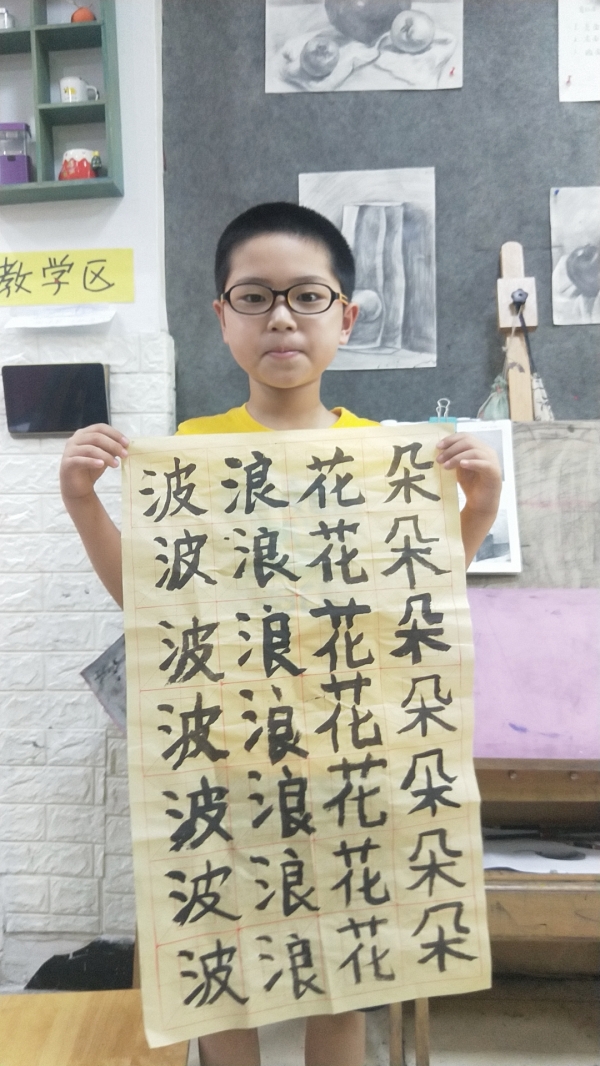 教学区
波浪花朵
波浪花朵
波浪花朵
波浪花朵
波浪花朵
波浪花朵
波浪花朵